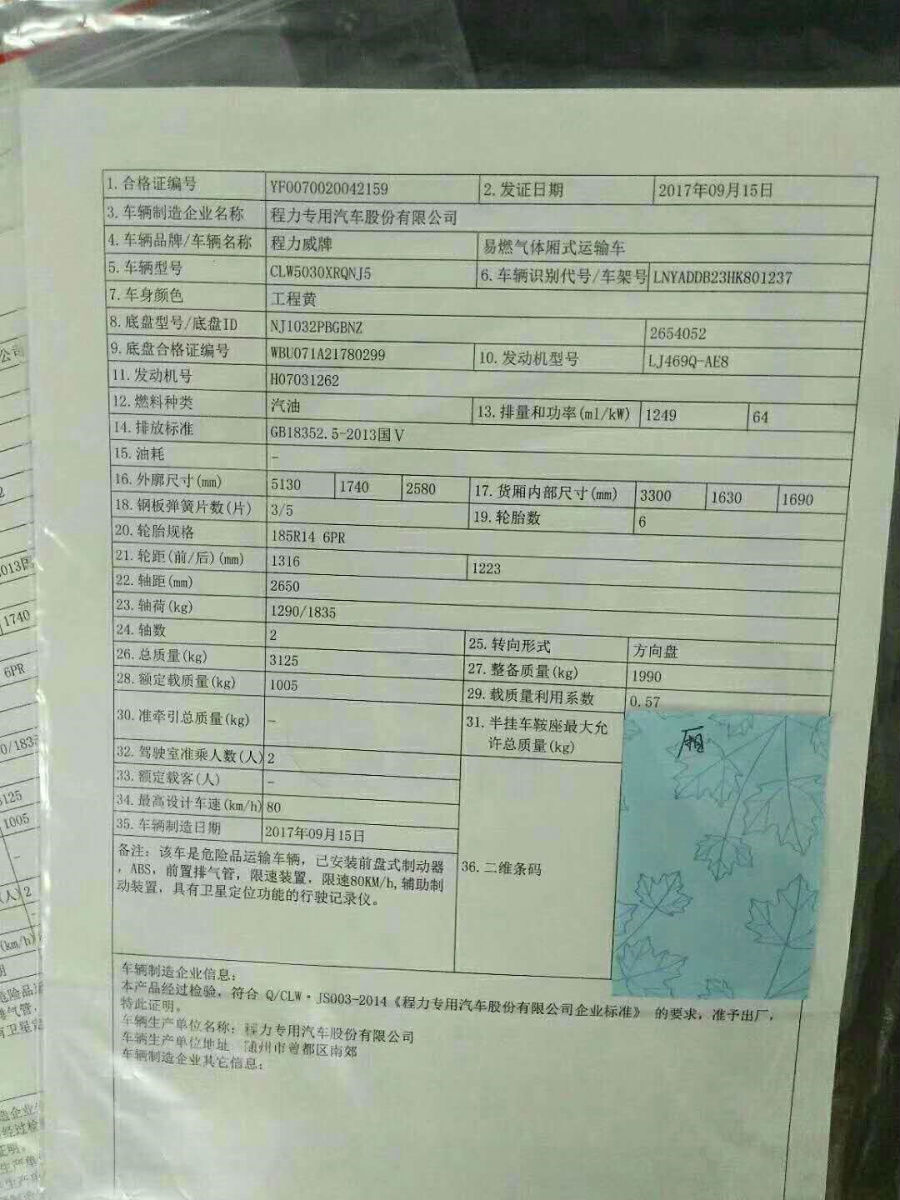 1.合格证编号 YF0070020042159 2.发证日期 2017年09月15日
3.车辆制造企业名称 程力专用汽车股份有限公司
4.车辆品牌/车辆名称 程力威牌 易燃气体厢式运输车
5.车辆型号 CLW5030XRQNJ5 6.车辆识别代号/车架号 LNYADDB23HK801237
7.车身颜色 工程黄
8.底盘型号/底盘ID NJ1032PBGBNZ 2654052
9.底盘合格证编号 WBU071A21780299 10.发动机型号 LJ469Q-AE8
11.发动机号 H07031262
12.燃料种类 汽油 13.排量和功率(ml/kW) 1249 64
14.排放标准 GB18352.5-2013国Ⅴ
15.油耗 -
16.外廓尺寸(mm) 5130 1740 2580 17.货厢内部尺寸(mm) 3300 1630 1690
18.钢板弹簧片数(片) 3/5 19.轮胎数 6
20.轮胎规格 185R14 6PR
21.轮距(前/后)(mm) 1316 1223
22.轴距(mm) 2650
23.轴荷(kg) 1290/1835
24.轴数 2 25.转向形式 方向盘
26.总质量(kg) 3125 27.整备质量(kg) 1990
28.额定载质量(kg) 1005 29.载质量利用系数 0.57
30.准牵引总质量(kg) - 31.半挂车鞍座最大允
许总质量(kg)
厢
32.驾驶室准乘人数(人) 2
33.额定载客(人) -
34.最高设计车速(km/h) 80
35.车辆制造日期 2017年09月15日
36.二维条码
备注:该车是危险品运输车辆,已安装前盘式制动器
,ABS,前置排气管,限速装置,限速80KM/h,辅助制
动装置,具有卫星定位功能的行驶记录仪。
车辆制造企业信息:
本产品经过检验,符合 Q/CLW·JS003-2014《程力专用汽车股份有限公司企业标准》 的要求,准予出厂,
特此证明。
车辆生产单位名称:程力专用汽车股份有限公司
车辆生产单位地址 随州市曾都区南郊
车辆制造企业其它信息:
公司
2013国
1740
6PR
0/1835
3125
1005
-
人) 2
-
(km/h)